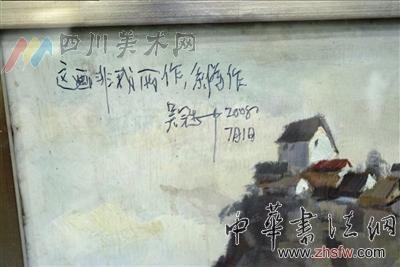 四川美术网
这画非我所作,系伪作
吴冠中 2008
7月1日
中華書法網
www.zhsfw.com